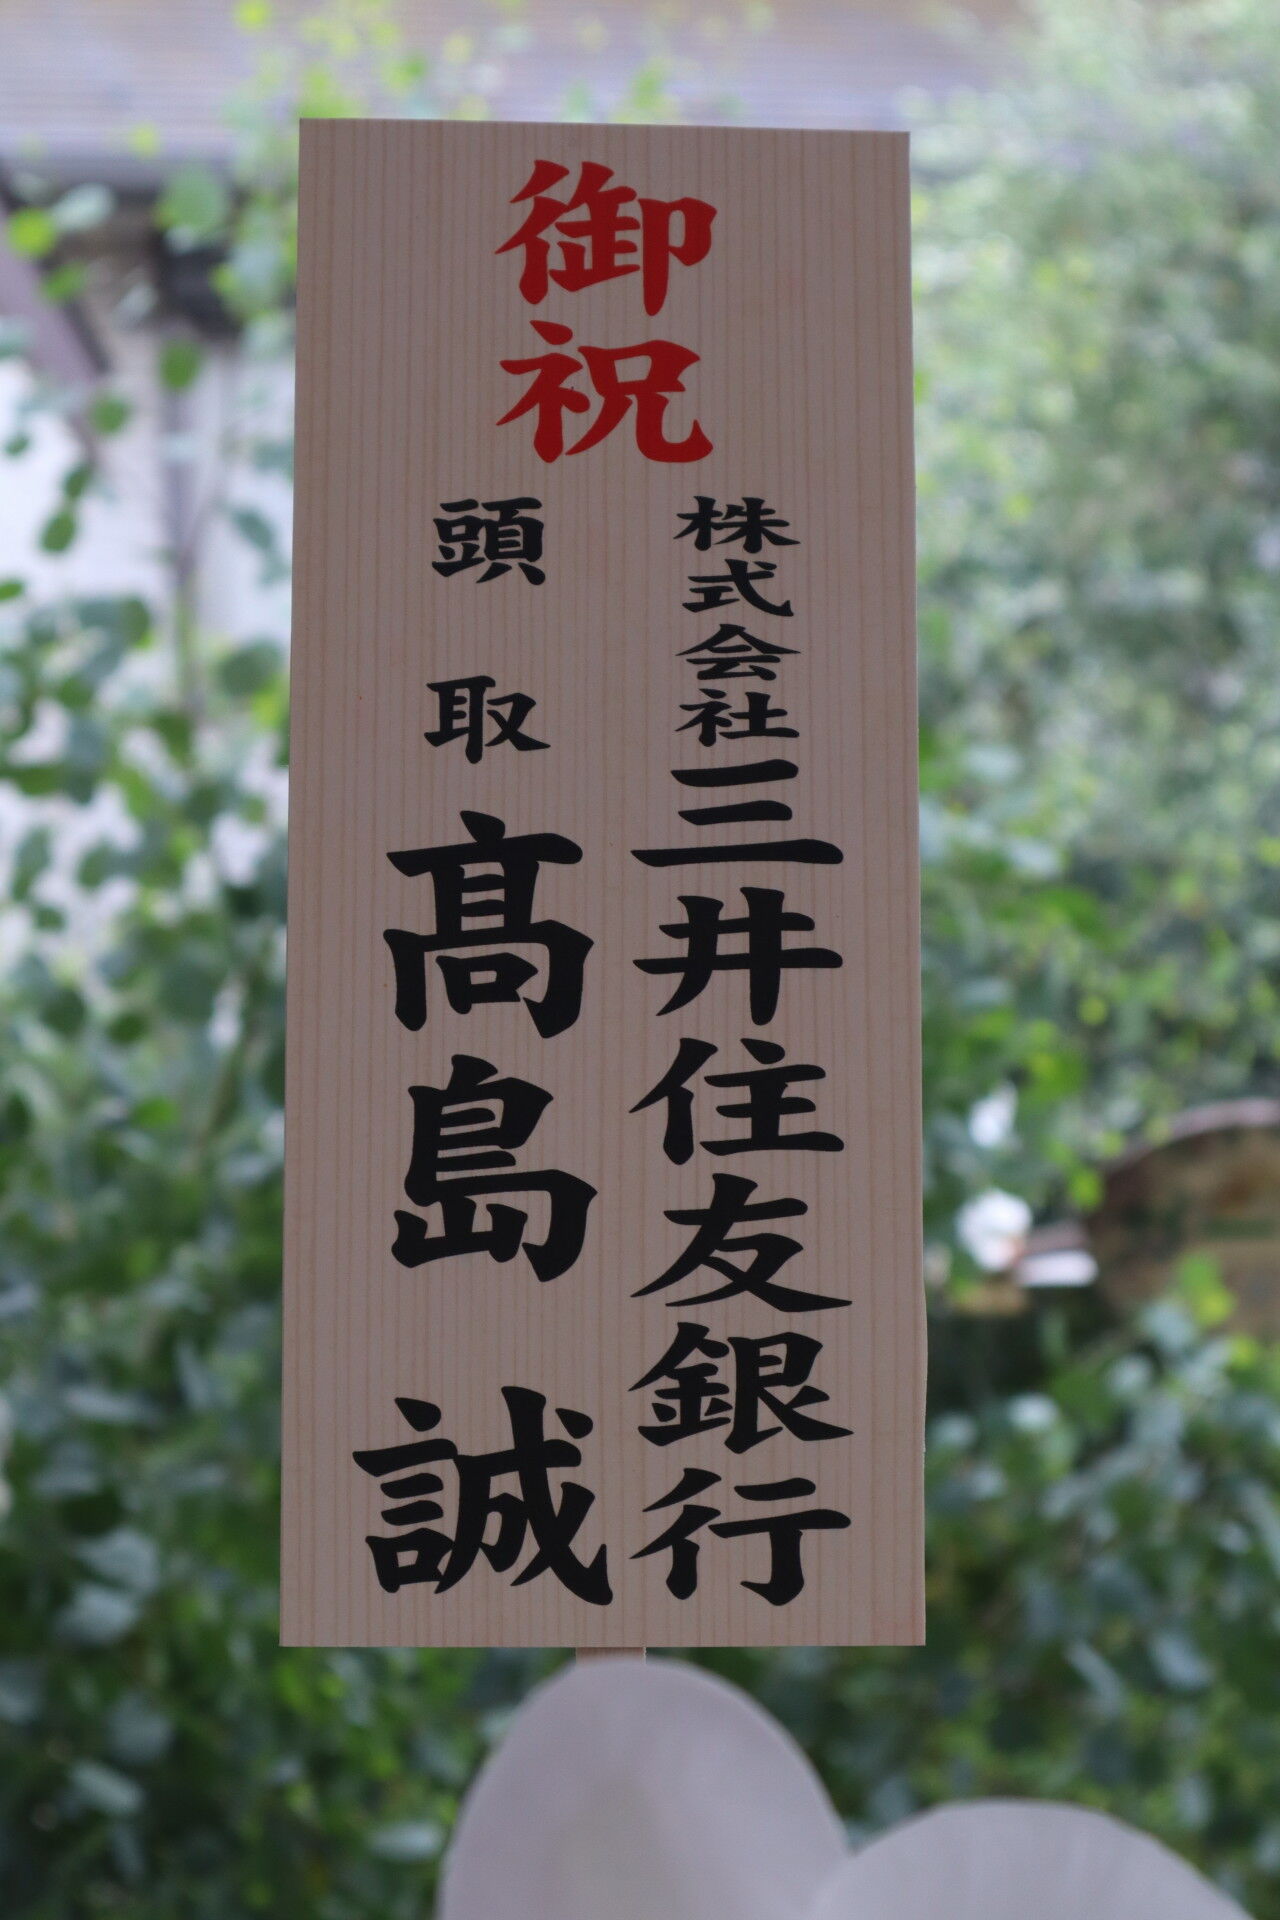 御祝
株式会社三井住友銀行
頭取 髙島 誠